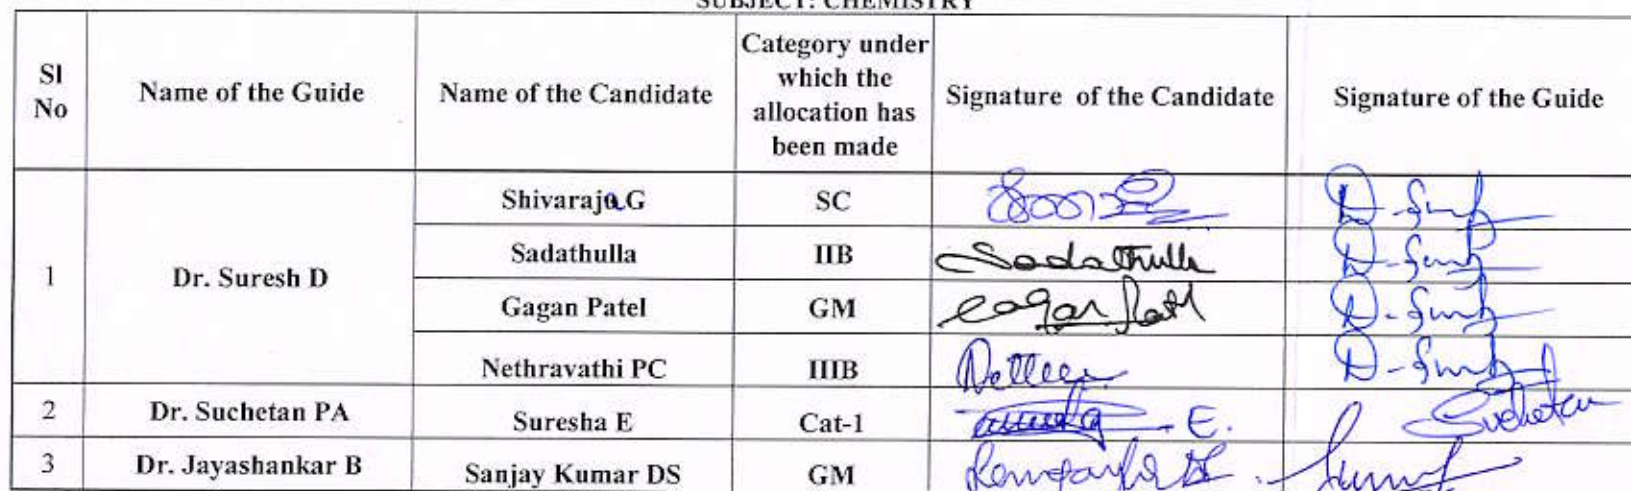 SUBJECT: CHEMISTRY
Sl No | Name of the Guide | Name of the Candidate | Category under which the allocation has been made | Signature of the Candidate | Signature of the Guide
1 | Dr. Suresh D | Shivaraja G | SC | | D-
Sadathulla | IIB | Sadathulla | D-
Gagan Patel | GM | | D-
Nethravathi PC | IIIB | | D-
2 | Dr. Suchetan PA | Suresha E | Cat-1 | E. | Suchetan
3 | Dr. Jayashankar B | Sanjay Kumar DS | GM